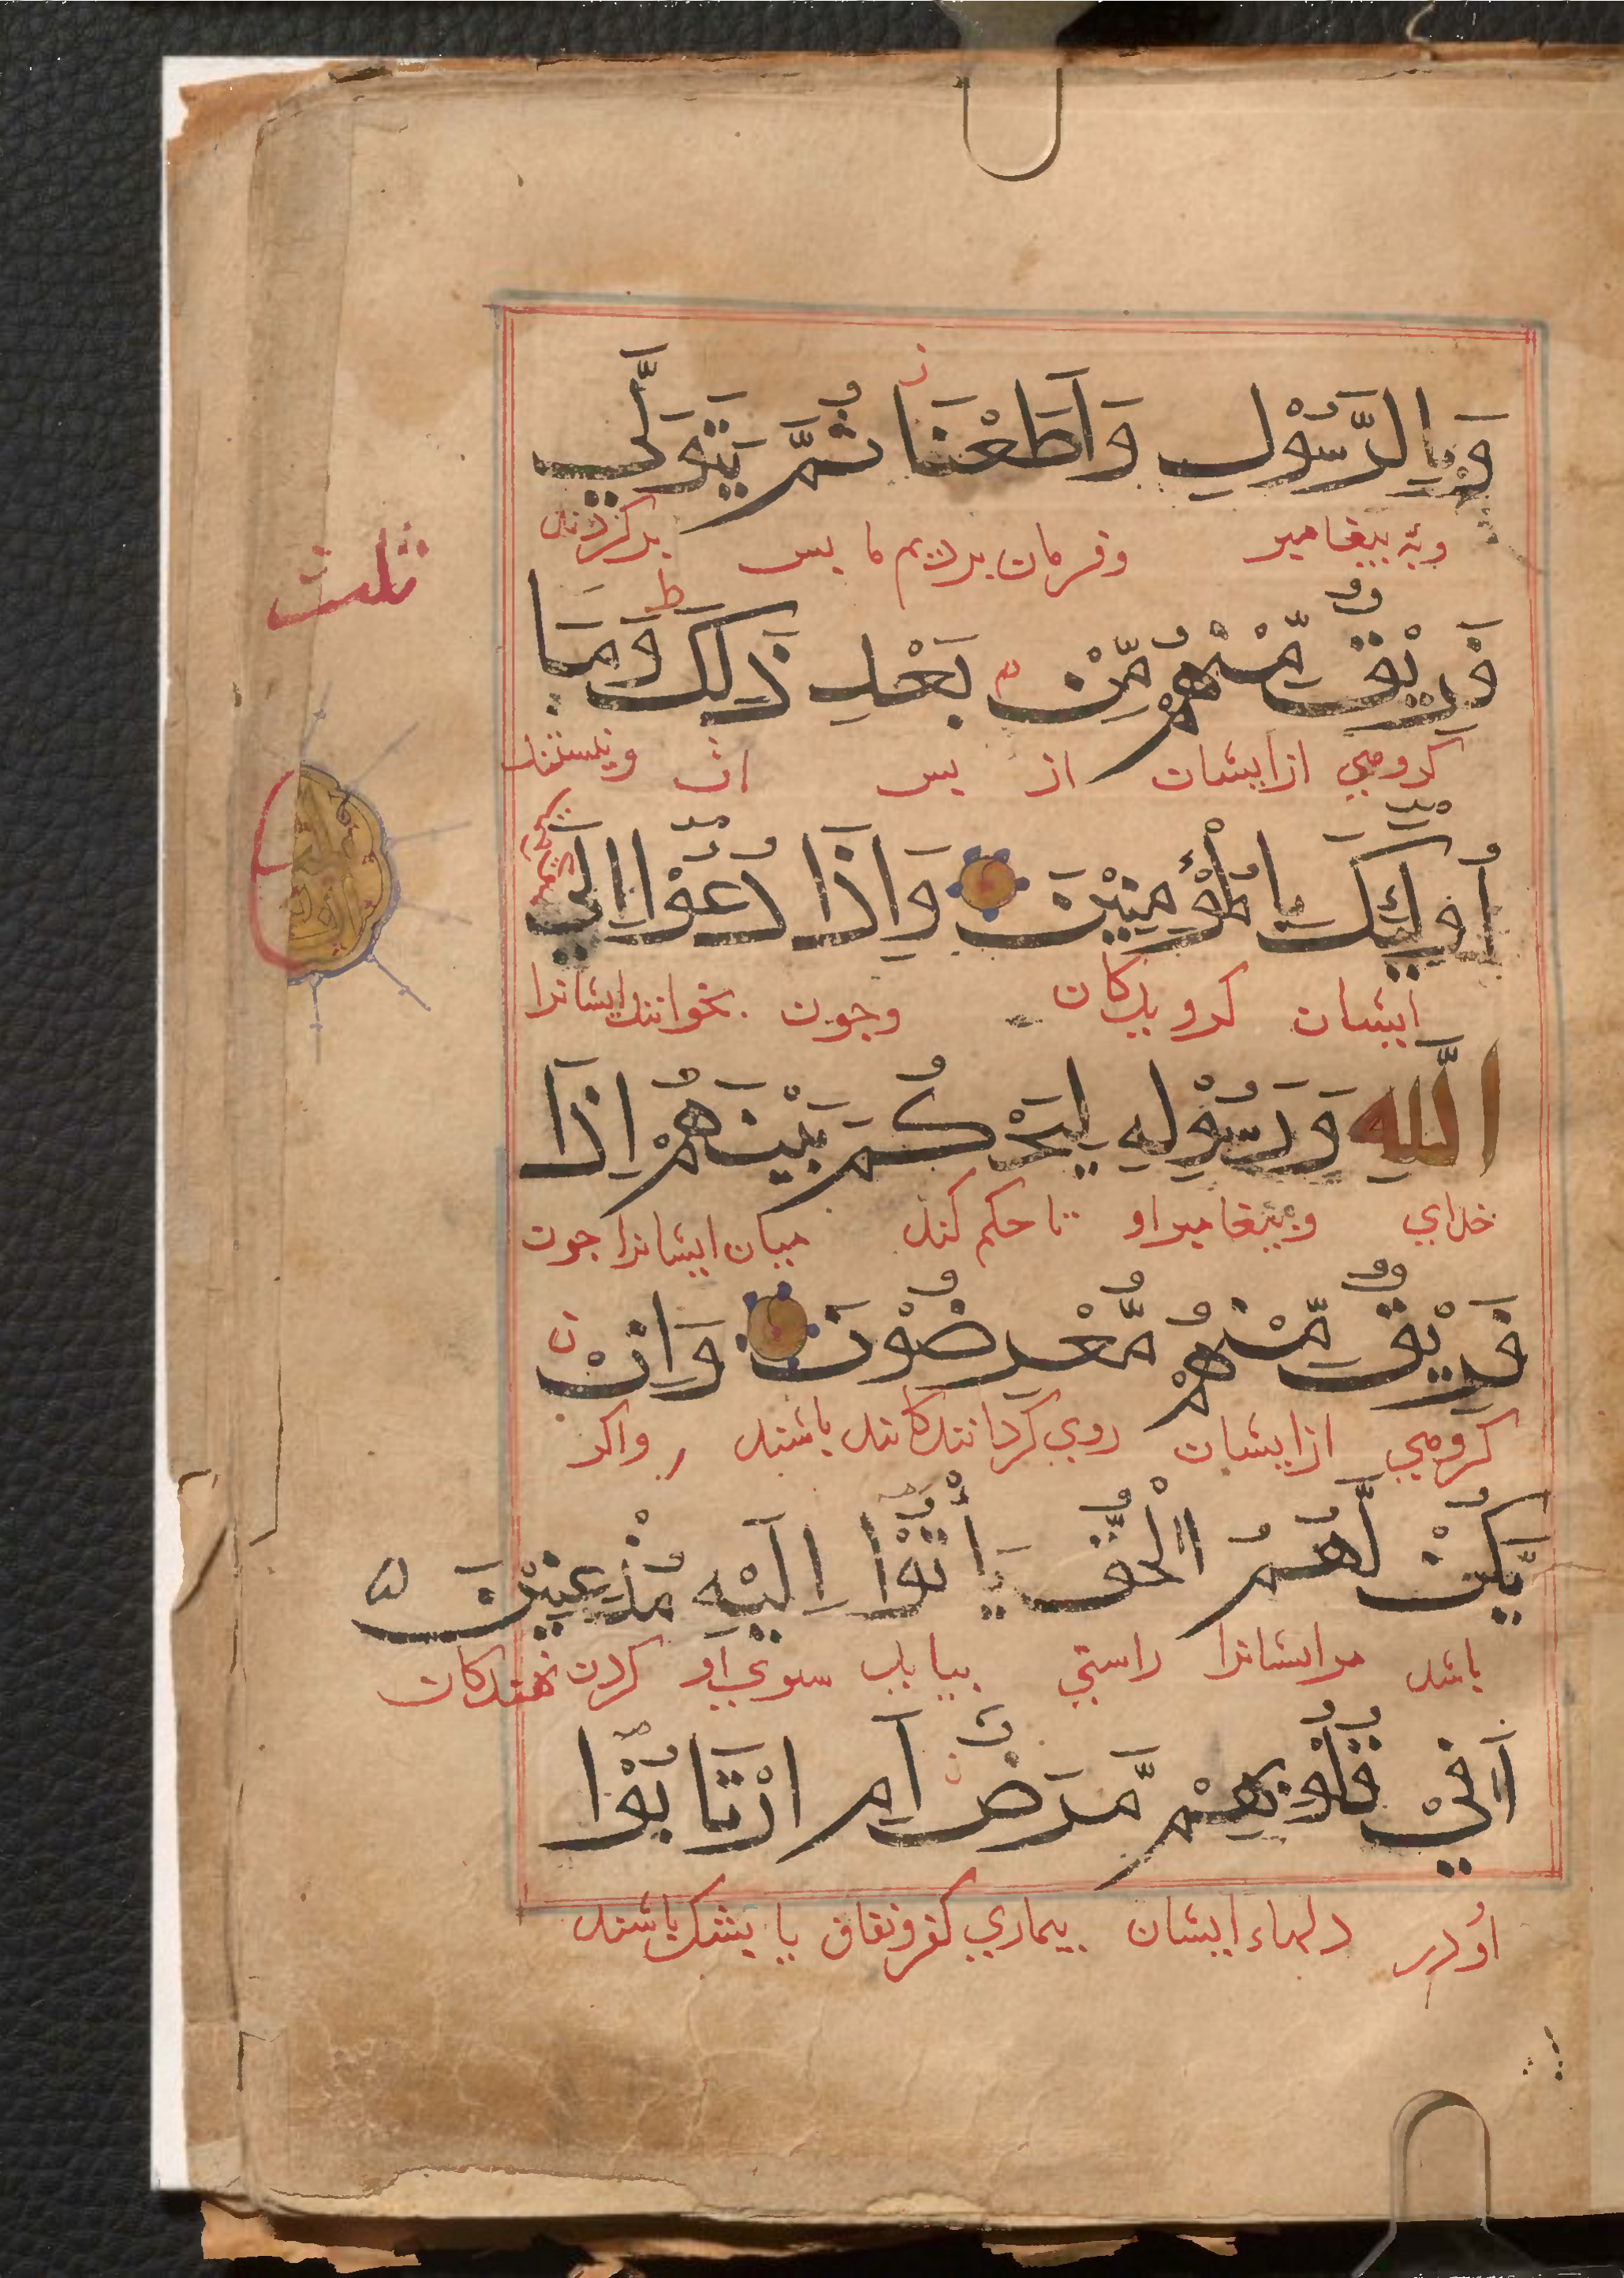 وَبِالرَّسُوْلِ وَاَطَعْنَا ثُمَّ يَتَوَلَّي
وبه بيغامبر وفرمان برديم ما بس بركردند
ثلث
فَرِيْقٌ مِّنْهُمْ مِّنْ بَعْدِ ذٰلِكَ وَمَا
كروهي ازايشان از بس ان ونيستند
اُولٰۤئِكَ بِالْمُؤْمِنِيْنَ وَاِذَا دُعُوْا اِلَي
ايشان كرويدكان وجون بخوانند ايشانرا
اللّٰهِ وَرَسُوْلِهٖ لِيَحْكُمَ بَيْنَهُمْ اِذَا
خداي وبيغامبراو تا حكم كند ميان ايشانرا جون
فَرِيْقٌ مِّنْهُمْ مُّعْرِضُوْنَ وَاِنْ
كروهي ازايشان روي كردانندكانند باشند واكر
يَّكُنْ لَّهُمُ الْحَقُّ يَأْتُوْا اِلَيْهِ مُذْعِنِيْنَ
باشد مرايشانرا راستي بيايند سوي او كردن نهندكان
اَفِيْ قُلُوْبِهِمْ مَّرَضٌ اَمِ ارْتَابُوْا
اودر دلهاء ايشان بيماري كفرونفاق يا بشك باشند